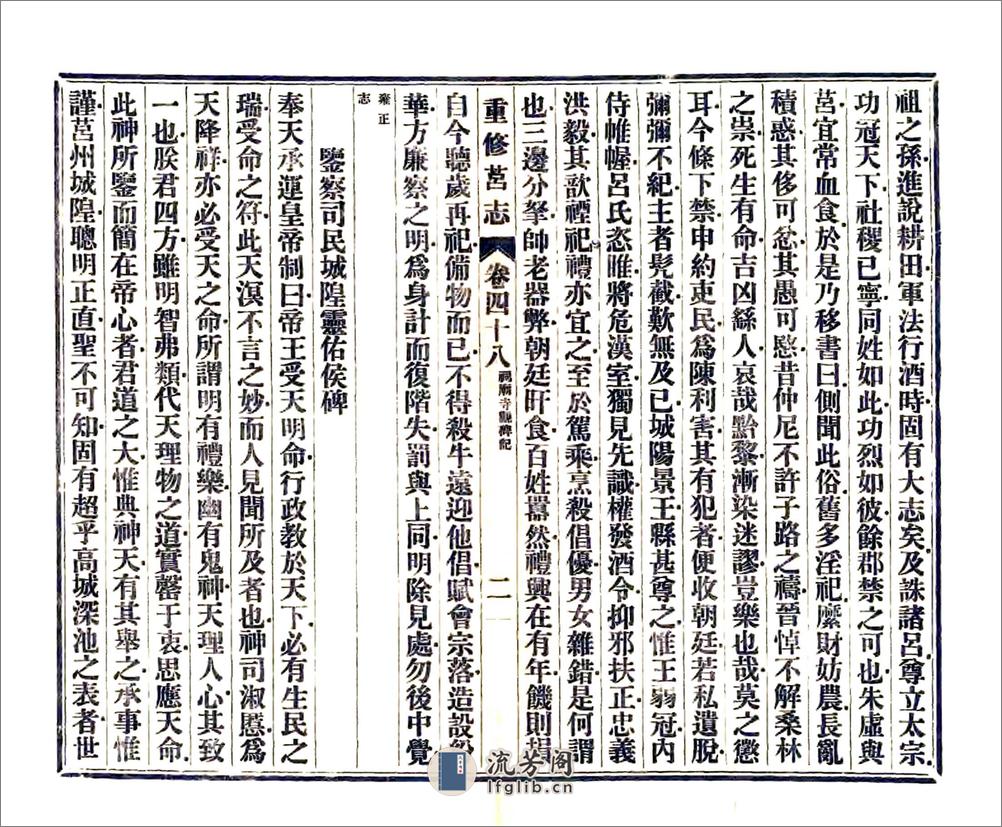 祖之孫進說耕田軍法行酒時固有大志矣及誅諸呂尊立太宗
功冠天下社稷已寧同姓如此功烈如彼餘郡禁之可也朱虛與
莒宜常血食於是乃移書曰側聞此俗舊多淫祀縻財妨農長亂
積惑其侈可忿其愚可愍昔仲尼不許子路之禱晉悼不解桑林
之祟死生有命吉凶繇人哀哉黔黎漸染迷謬豈樂也哉莫之懲
耳今條下禁申約吏民為陳利害其有犯者便收朝廷若私遺脫
彌彌不紀主者髡截歎無及已城陽景王縣甚尊之惟王弱冠內
侍帷幄呂氏恣睢將危漢室獨見先識權發酒令抑邪扶正忠義
洪毅其歆禋祀禮亦宜之至於駕乘烹殺倡優男女雜錯是何謂
也三邊分拏帥老器弊朝廷旰食百姓囂然禮興在有年饑則損
重修莒志 卷四十八 祠廟寺觀碑記 二
自今聽歲再祀備物而已不得殺牛遠迎他倡賦會宗落造設紛
華方廉察之明為身計而復階失罰與上同明除見處勿後中覺
雍正志
鑒察司民城隍靈佑侯碑
奉天承運皇帝制曰帝王受天明命行政教於天下必有生民之
瑞受命之符此天溟不言之妙而人見聞所及者也神司淑慝為
天降祥亦必受天之命所謂明有禮樂幽有鬼神天理人心其致
一也朕君四方雖明智弗類代天理物之道實罄于衷思應天命
此神所鑒而簡在帝心者君道之大惟典神天有其舉之承事惟
謹莒州城隍聰明正直聖不可知固有超乎高城深池之表者世
流芳阁
lfglib.cn